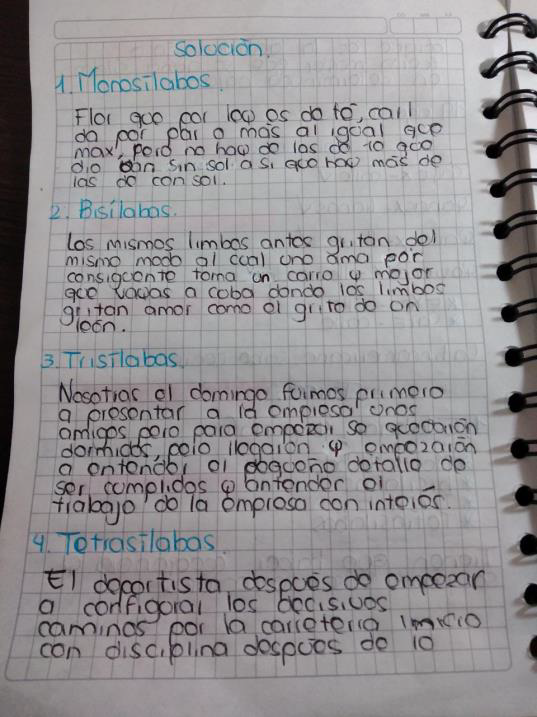 Solución.
1. Monosílabos.
Flor que por ley es da té, call
da por par a mas al igual que
max, pero no hay de las de 10 que
dio sin sol a si que hay mas de
las de con sol.
2. Bisílabas.
Los mismos limbos antes gritan del
mismo modo al cual uno ama por
consiguente toma un carro y mejor
que vayas a coba dondo los limbos
gritan amor como el grito de un
león.
3. Trisílabas.
Nosotras el domingo fuimos primero
a presentar a la empresa unos
amigos pero para empezar se quedarón
dormidos, pero llegarón y empezarón
a entender el pequeño detalle de
ser cumplidos y entender el
trabajo de la empresa con interés.
4. Tetrasílabas.
El deportista después de empezar
a configurar los decisivos
caminos por la carreterra
con disciplina despúes de 10